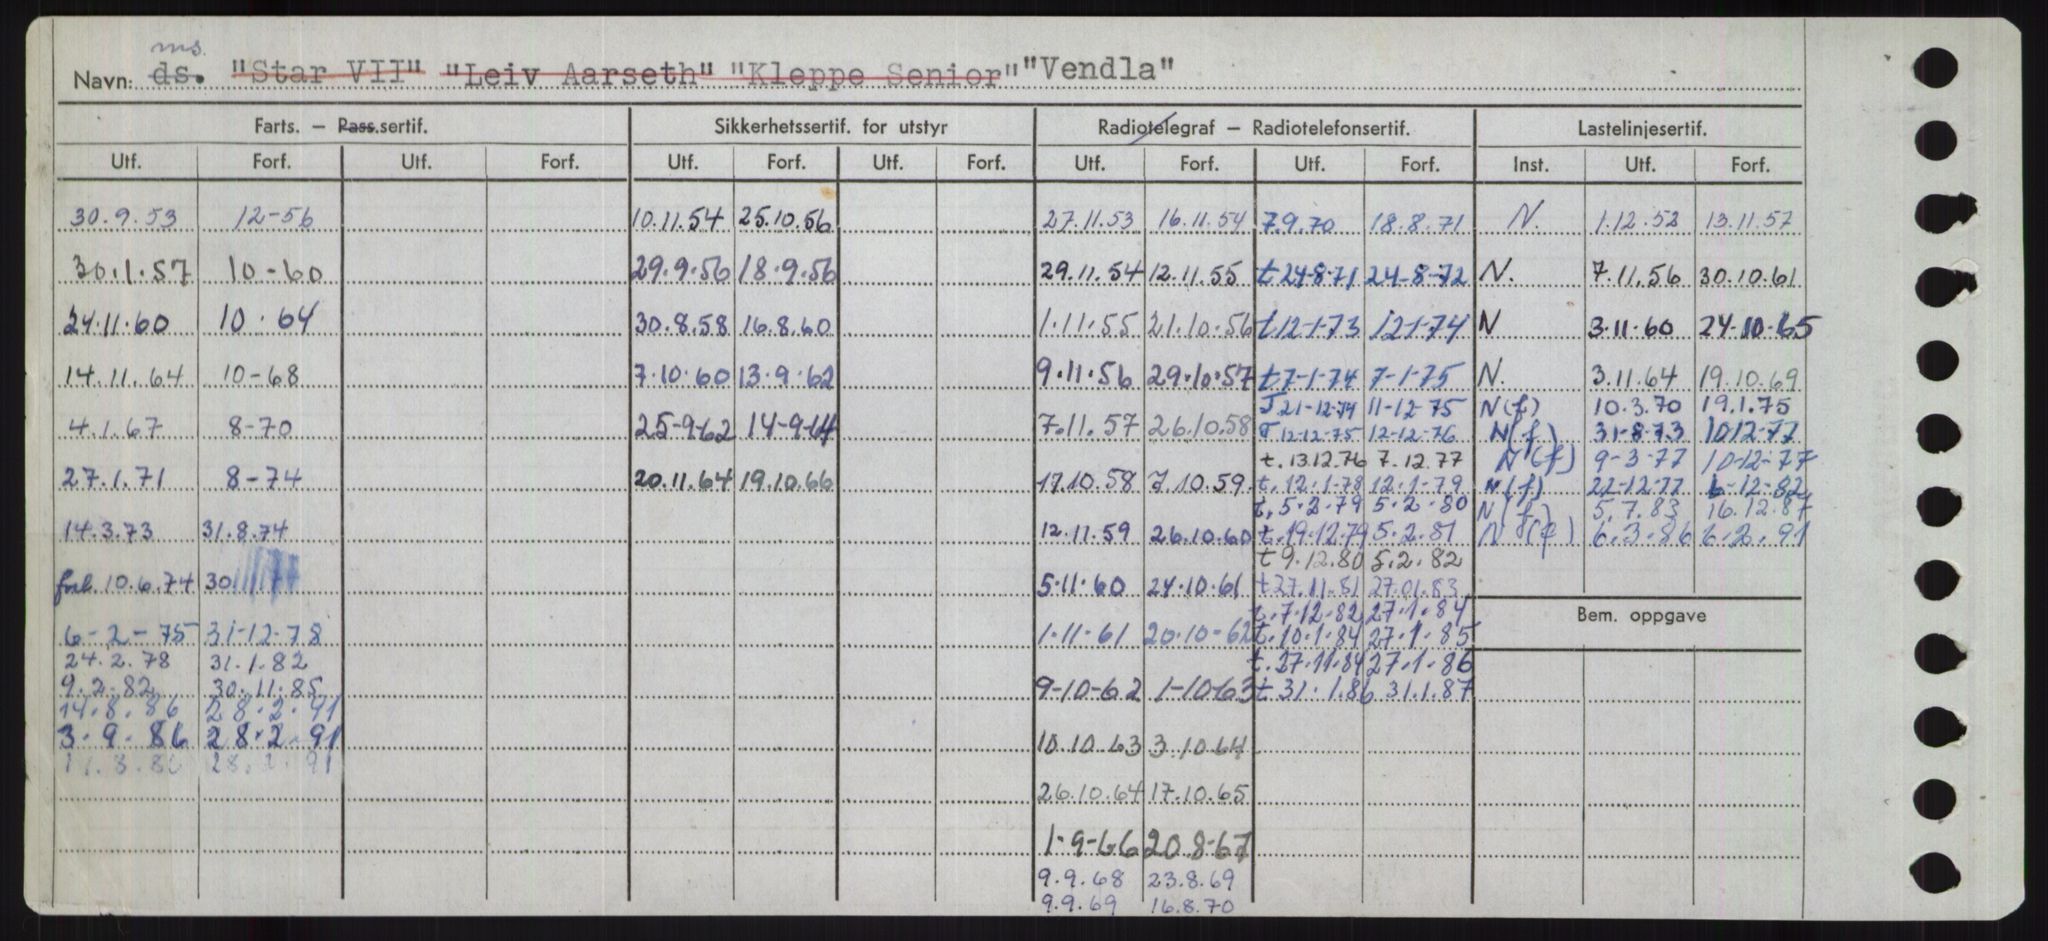 ms.
Navn: ds. "Star VII" "Leiv Aarseth" "Kleppe Senior" "Vendla"
Farts. — Pass.sertif. Sikkerhetssertif. for utstyr Radiotelegraf — Radiotelefonsertif. Lastelinjesertif.
Utf. Forf. Utf. Forf. Utf. Forf. Utf. Forf. Utf. Forf. Utf. Forf. Inst. Utf. Forf.
30.9.53 12-56 10.11.54 25.10.56 27.11.53 16.11.54 7.9.70 18.8.71 N. 1.12.52 13.11.57
30.1.57 10-60 29.9.56 18.9.56 29.11.54 12.11.55 t 24-8-71 24-8-72 N. 7.11.56 30.10.61
24.11.60 10.64 30.8.58 16.8.60 1.11.55 21.10.56 t 12-1-73 12-1-74 N 3.11.60 24-10-65
14.11.64 10-68 7.10.60 13.9.62 9.11.56 29.10.57 t 7-1-74 7-1-75 N. 3.11.64 19.10.69
T 21-12-74 11-12-75 N(f) 10.3.70 19.1.75
4.1.67 8-70 25-9-62 14-9-64 7.11.57 26.10.58 T 12-12-75 12-12-76 N(f) 31-8-73 10-12-77
t. 13.12.76 7.12.77 N(f) 9-3-77 10-12-77
27.1.71 8-74 20.11.64 19.10.66 17.10.58 7.10.59 t. 12.1-78 12.1-79 N(f) 22-12-77 6-12-82
t. 5.2.79 5.2.80 N(f) 5.7.83 16.12.87
14.3.73 31.8.74 12.11.59 26.10.60 t. 19.12.79 5.2.81 N(f) 6.3.86 6.2.91
t 9.12.80 5.2.82
forl. 10.6.74 30 5.11.60 24.10.61 t 27.11.81 27.01.83
t. 7.12.82 27.1.84
Bem. oppgave
6-2-75 31-12-78 1.11.61 20.10-62 t. 10.1.84 27.1.85
24.2.78 31.1.82 t. 27.11.84 27.1.86
9.2.82 30.11.85 9-10-62 1-10-63 t 31.1.86 31.1.87
14.8.86 28.2.91
3.9.86 28.2.91 10.10.63 3.10.64
26.10.64 17.10.65
1-9-66 20.8-67
9.9.68 23.8.69
9.9.69 16.8.70